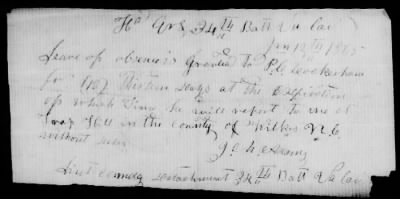 Hd Qrs 34th Batt Va Cav
Jan 1865
Leave of absence is Granted to P.C.
for thirteen days at the Expiration
of which time he will report to me at
Trap Hill in the county of Wilkes N.C.
without
Lieut comdg detachment 34th Batt Va Cav